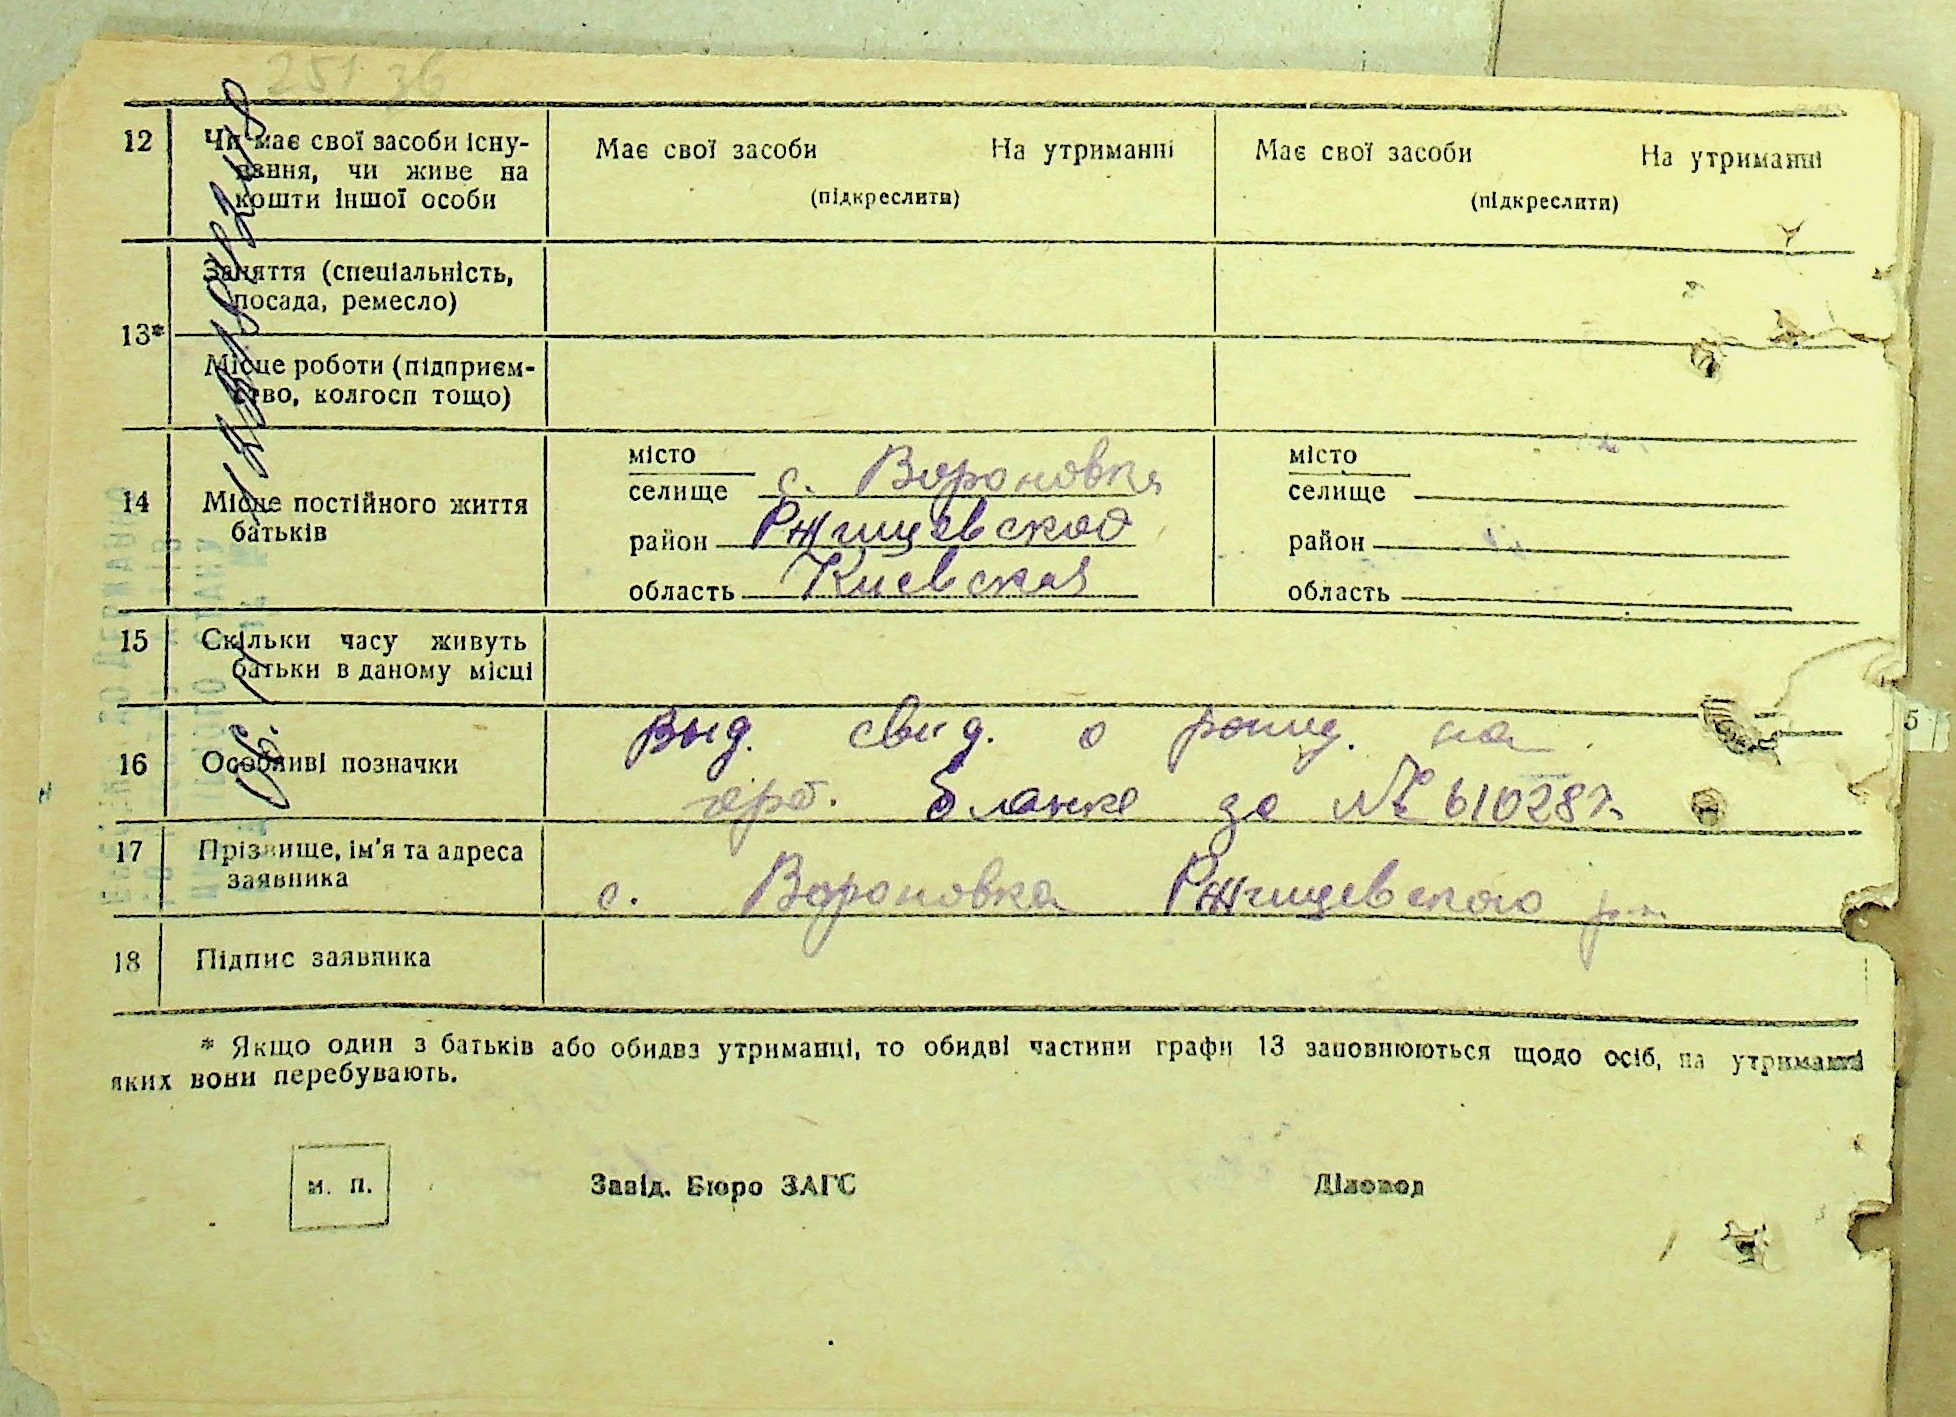 251 36
12 Чи має свої засоби існу-
вання, чи живе на
кошти іншої особи
Має свої засоби На утриманні
(підкреслити)
Має свої засоби На утриманні
(підкреслити)
13*
Заняття (спеціальність,
посада, ремесло)
Місце роботи (підприєм-
ство, колгосп тощо)
14 Місце постійного життя
батьків
місто
селище с. Вороновка
район Ржищевской
область Киевская
місто
селище
район
область
15 Скільки часу живуть
батьки в даному місці
16 Особливі позначки
Выд. свид. о рожд. на
герб. бланке за №
17 Прізвище, ім'я та адреса
заявника
с. Вороновка Ржищевского р-на
18 Підпис заявника
* Якщо один з батьків або обидва утриманці, то обидві частини графи 13 заповнюються щодо осіб, на утриманні
яких вони перебувають.
м. п.
Завід. Бюро ЗАГС
Діловод
5